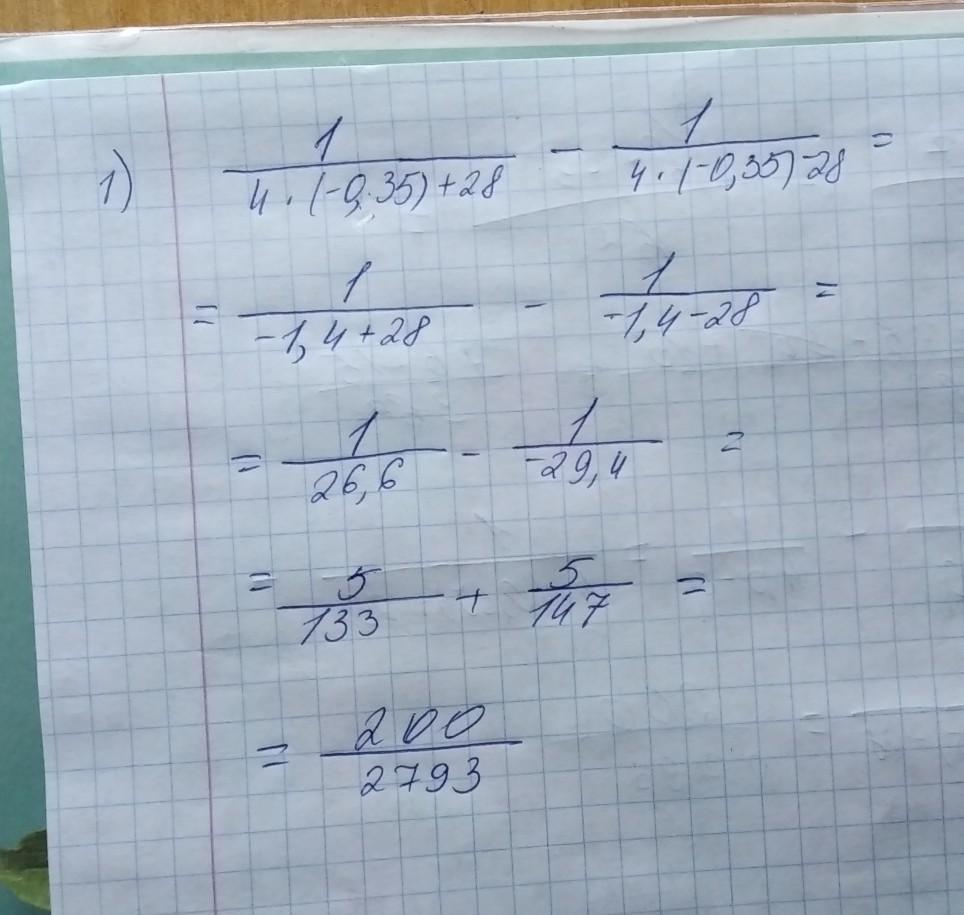 1) 1/(4 · (-0,35)+28) - 1/(4 · (-0,35)-28) =
= 1/(-1,4+28) - 1/(-1,4-28) =
= 1/26,6 - 1/-29,4 =
= 5/133 + 5/147 =
= 200/2793